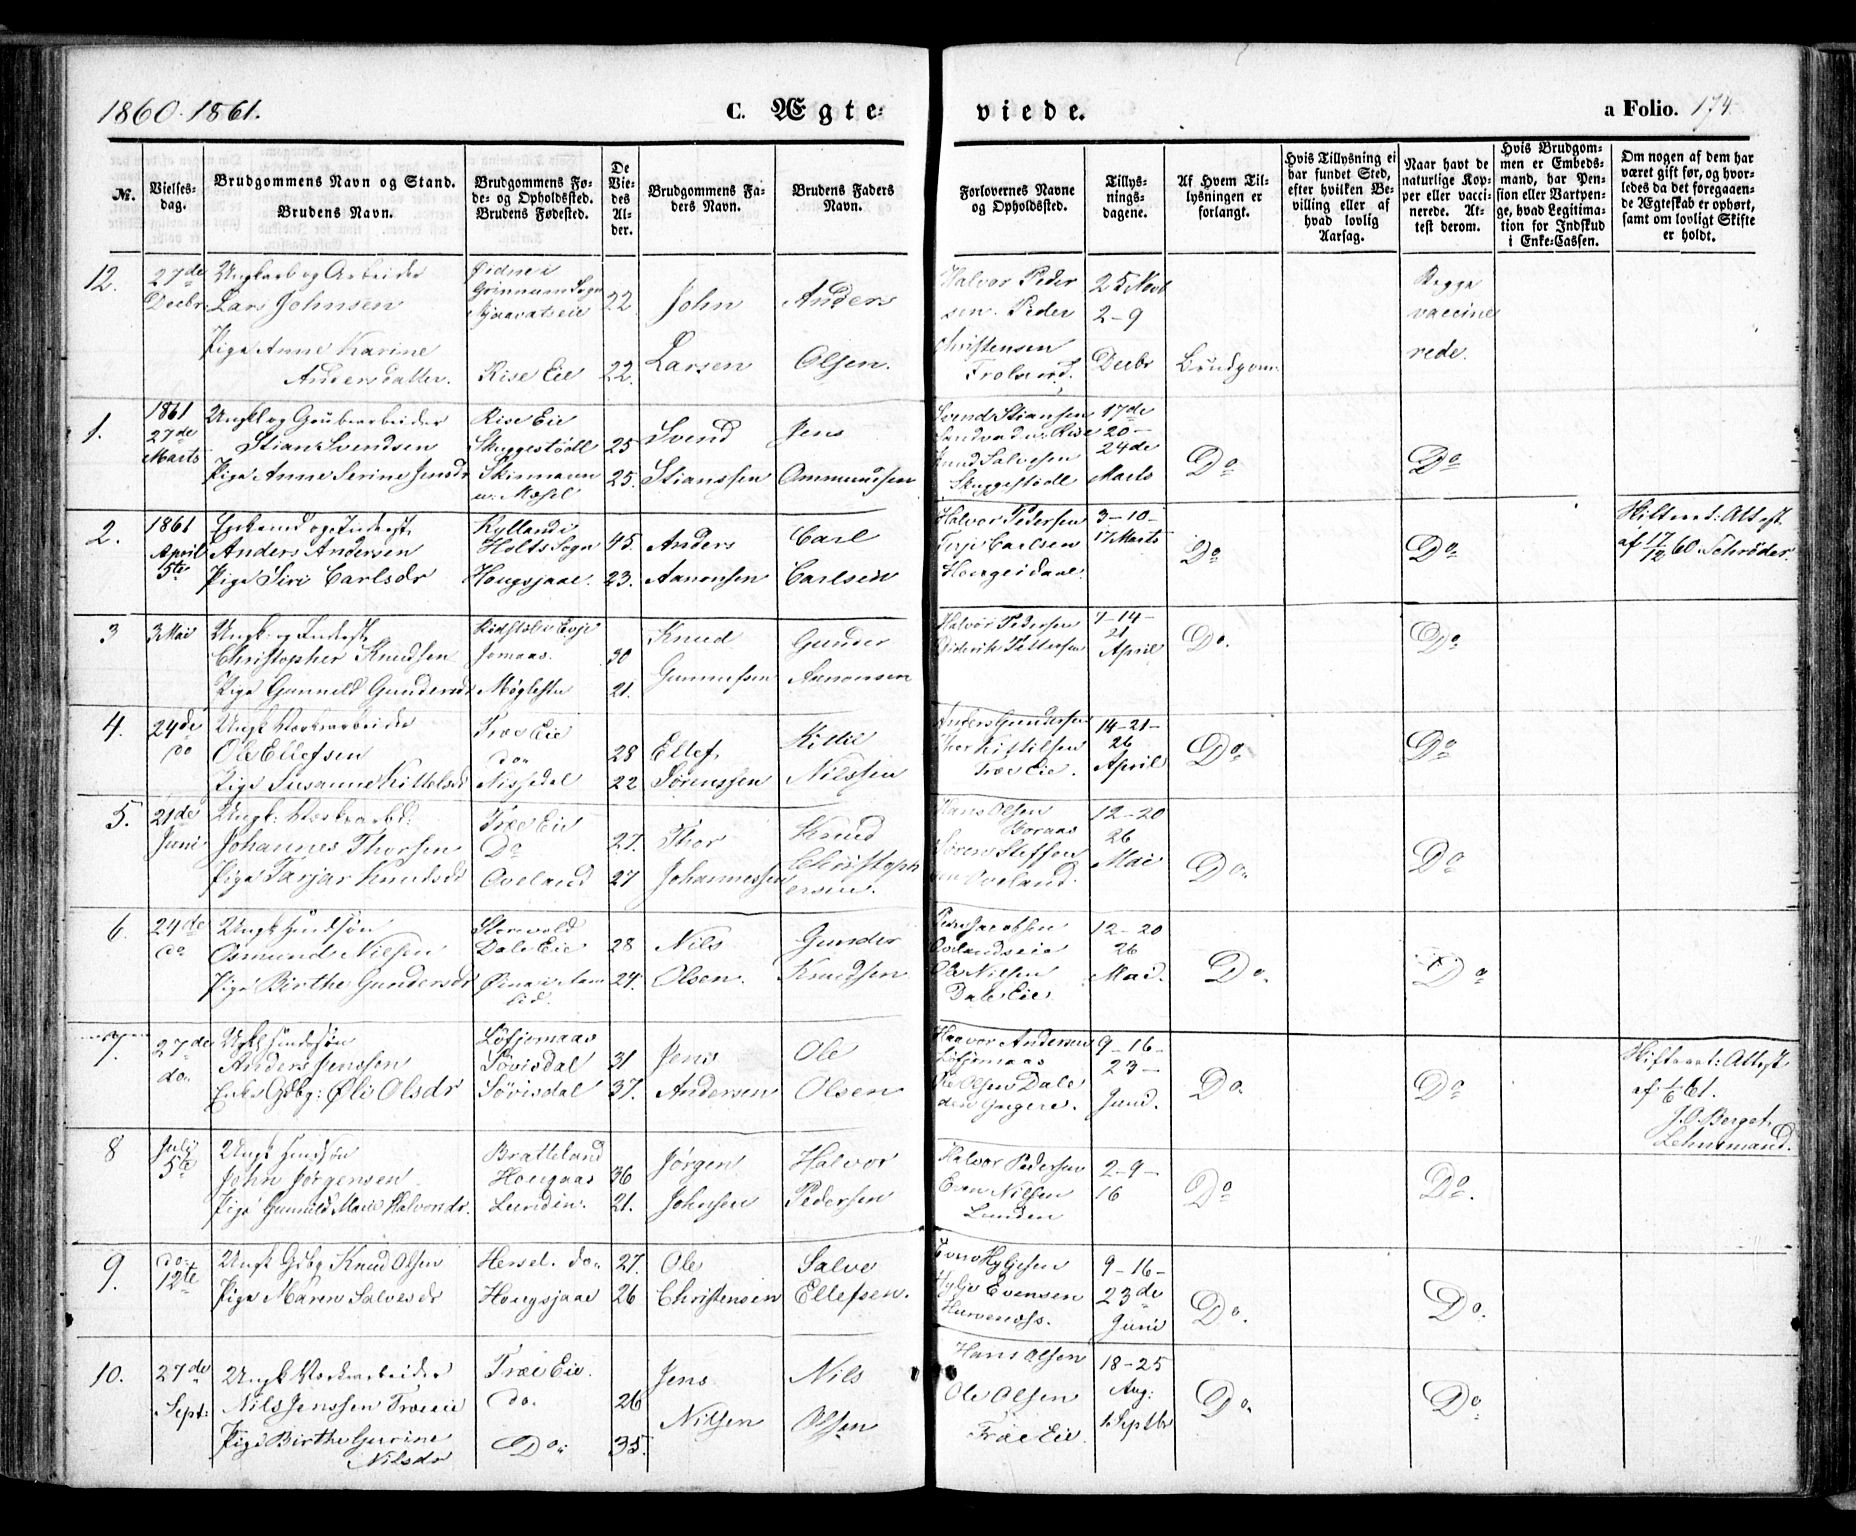 1860-1861.
C. Ægte-
viede.
a Folio. 174.
№.
Vielses-
dag.
Brudgommens Navn og Stand.
Brudens Navn.
Brudgommens Fø-
de- og Opholdssted.
Brudens Fødested.
De
Vie-
des
Al-
der.
Brudgommens Fa-
ders Navn.
Brudens Faders
Navn.
Forlovernes Navne
og Opholdssted.
Tillys-
nings-
dagene.
Af Hvem Til-
lysningen er
forlangt.
Hvis Tillysning ei
har fundet Sted,
efter hvilken Be-
villing eller af
hvad lovlig
Aarsag.
Naar havt de
naturlige Kop-
per eller vacci-
nerede. At-
test derom.
Hvis Brudgom-
men er Embeds-
mand, har Pen-
sion eller Vartpen-
ge, hvad Legitima-
tion for Indskud
i Enke-Cassen.
Om nogen af dem har
været gift før, og hvor-
ledes da det foregaaen-
de Ægteskab er ophørt,
samt om lovligt Skifte
er holdt.
12.
27de
Decbr
Ungkarl og Arbeider
Lars Johnsen
Pige Anne Karine
Andersdatter.
i
Sogn
Rise Eie
22
22.
John
Larsen
Anders
Olsen.
Halvor Peder
sen. Peder
Christensen
Froland.
25 Novb
2-9
Decbr
Brudgom.
Begge
vaccine
rede.
1.
1861
27de
Marts
Ungkl og Grubearbeider
Stian Svendsen
Pige Anne Serine Jensdr
Rise Eie
Skuggestødl
25
25.
Svend
Stianssen
Jens
Ommundsen
Svend Stiansen
Rise
Knud Salvesen
Skuggestødl
17de
20-
24de
Marts
Do
Do
2.
1861
April
5te
Enkemd og Inderst
Anders Andersen
Pige Siri Carlsdr
Kylland i
Holts Sogn
Hougsjaae.
45.
23.
Anders
Aanonsen
Carl
Carlsen
Halvor Pedersen
Terje Carlsen
3-10-
17 Marts
Do
Do
Skifteret: Attest
af 17/12 60. Schrøder.
3
3 Mai
Ungk. og Inderst
Christopher Knudsen
Pige Gunnild Gundersd
Jomaas.
Møglestu
30
21.
Knud
Gunnufsen
Gunder
Aanonsen
Halvor Pedersen
Diderik Pettersen
7-14-
21
April
Do.
Do
4.
24de
do
Ungk Værkarbeider
Ole Ellefsen
Pige Susanne Kittelsd
Træe Eie
do
Nissedal
28
22
Ellef
Sørenssen
Kittil
Nilssen
Anders Gundersen
Thor Kittilsen
Træe Eie.
14-21-
26
April
Do.
Do
5.
21de
Juni
Ungk: Værkarbd:
Johannes Thorsen
Pige Tarjer Knudsd
Træe Eie
Do
Oveland
27.
27
Thor
Johannessen
Knud
Christoph
ersen.
Hans Olsen
Boraas
Søren Steffen
sen Oveland.
12-20
26
Mai
Do.
Do
6.
24de
do
Ungk Huusøn
Osmund Nilsen
Pige Birthe Gundersdr
Storvold
Dale Eie
28
24.
Nils
Olsen.
Gunder
Knudsen
Peder Jacobsen
Ovelandseie
Ole Nilsen
Dale Eie.
12-20
26
Mai.
Do.
Do
7.
27de
do.
Ungk Huusøn
Anders Jenssen
Enke Gdbg: Øli Olsdr
Løfjomaas
Søvisdal
Søvisdal
31
37.
Jens
Andersen
Ole
Olsen
Haavor Andersen
Løfjomaas
Ole Olsen Dale
den Yngere.
9-16-
23-
Juni.
Do.
Do
Skifteret: Attest
af 1/6 61.
J. O. Berget.
Lehnsmand.
8
July
5te
Ungk Huusøn
John Jørgensen
Pige Gunnild Marie Halvorsdr.
Bratteland
Hougaas
Lunden.
36
21.
Jørgen
Johnsen
Halvor
Pedersen
Halvor Pedersen
Even Nilsen
Lunden
2-9-
16
Do
Do.
9.
do.
12te
Ungk Gdbg Knud Olsen
Pige Maren Salvesdr
Hersel. do.
Hougsjaae
27.
26
Ole
Christensen
Salve
Ellefsen.
Even Hylgesen
Hylje Evensen
9-16-
23de
Juni
Do.
Do.
10.
27de
Sept:
Ungk Værkarbeider
Nils Jenssen Træeeie
Pige Birthe Gurine
Nilsdr
Træe Eie.
do.
Do.
26
35.
Jens
Nilsen
Nils
Olsen
Hans Olsen
Ole Olsen
Træe Eie
18-25
Aug:
1 Septbr
Do.
Do